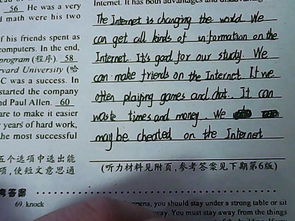 56. He was a very
math were his two
of his friends spent
computers. In the end,
program (程序) 58
Harvard University (哈
C was a success. In
started the company
and Paul Allen. 60
are to make it easier
years of hard work,
the most successful
五个选项中选出能
项,使短文意思通
The Internet is changing the world. We
can get all kinds of information on the
Internet. It's good for our study. We
can make friends on the Internet. If we
often plaing games and chat. It can
waste times and money. We
may be cheated on the Internet
(听力材料见附页,参考答案见下期第6版)
考答案
69. knock
appens, you should stay under a strong table or sit
away. You must stay away from the things